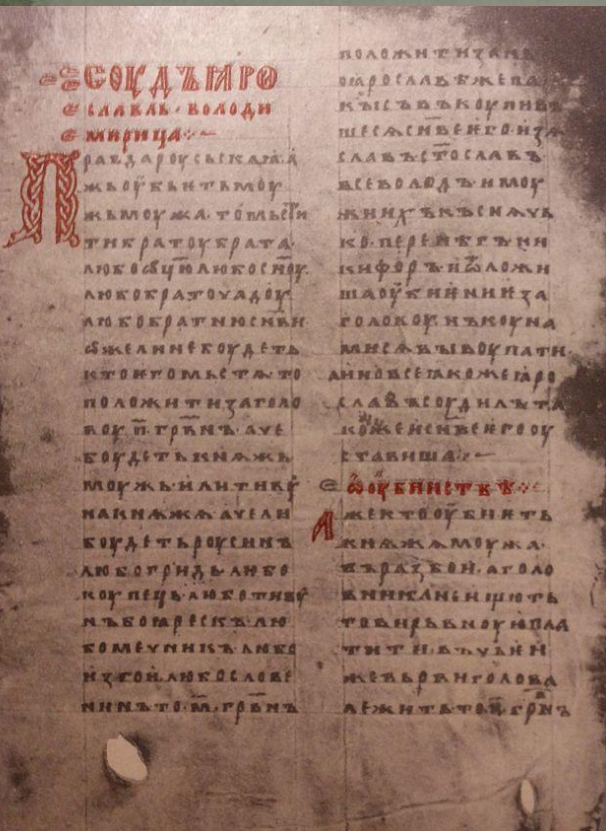 СОУДЪ ꙖРО
СЛАВЛЬ · ВОЛОДИ
МИРИЦА ⁘~
Правда роусьскаꙗ · а
жь оубьѥть моу
жь моужа · то мьсти
ти братоу брата ·
любо ѡц҃ю любо сн҃оу ·
любо братоучадоу
любо братню сн҃ви
ѡже ли не боудеть
кто ѥго мьстѧ то
положити за голо
воу · п҃ · грв҃нъ · аче
боудеть кнѧжь
моужь · или тивоу
на кнѧжѧ · аче ли
боудеть роусинъ
любо гридь · любо
коупець · любо тивоу
нъ боꙗрескъ · лю
бо мечникъ любо
изгои · любо слове
нинъ то · м҃ · грв҃нъ
положити за нь
ꙗрославѣ же па
кы съвъкоупивъ
шесѧ сн҃ве ѥго изѧ
славъ ст҃ославъ ·
всеволодъ и моу
жи ихъ къснѧчь
ко · перенѣгъ ни
кифоръ и ѿложи
ша оубиѥниѥ за
головоу · нъ коуна
ми сѧ выкоупати ·
а ино все ꙗкоже ꙗро
славъ соудилъ та
коже и сн҃ве ѥго оу
ставиша ⁘~
ѡ оубииствѣ ⁘
Аже кто оубиѥть
кнѧжѧ моужа ·
въ разбои · а голо
вника не ищють
то вирьвноую пла
тити въ чьѥи
же вьрви голова
лежить то · п҃ · грв҃нъ